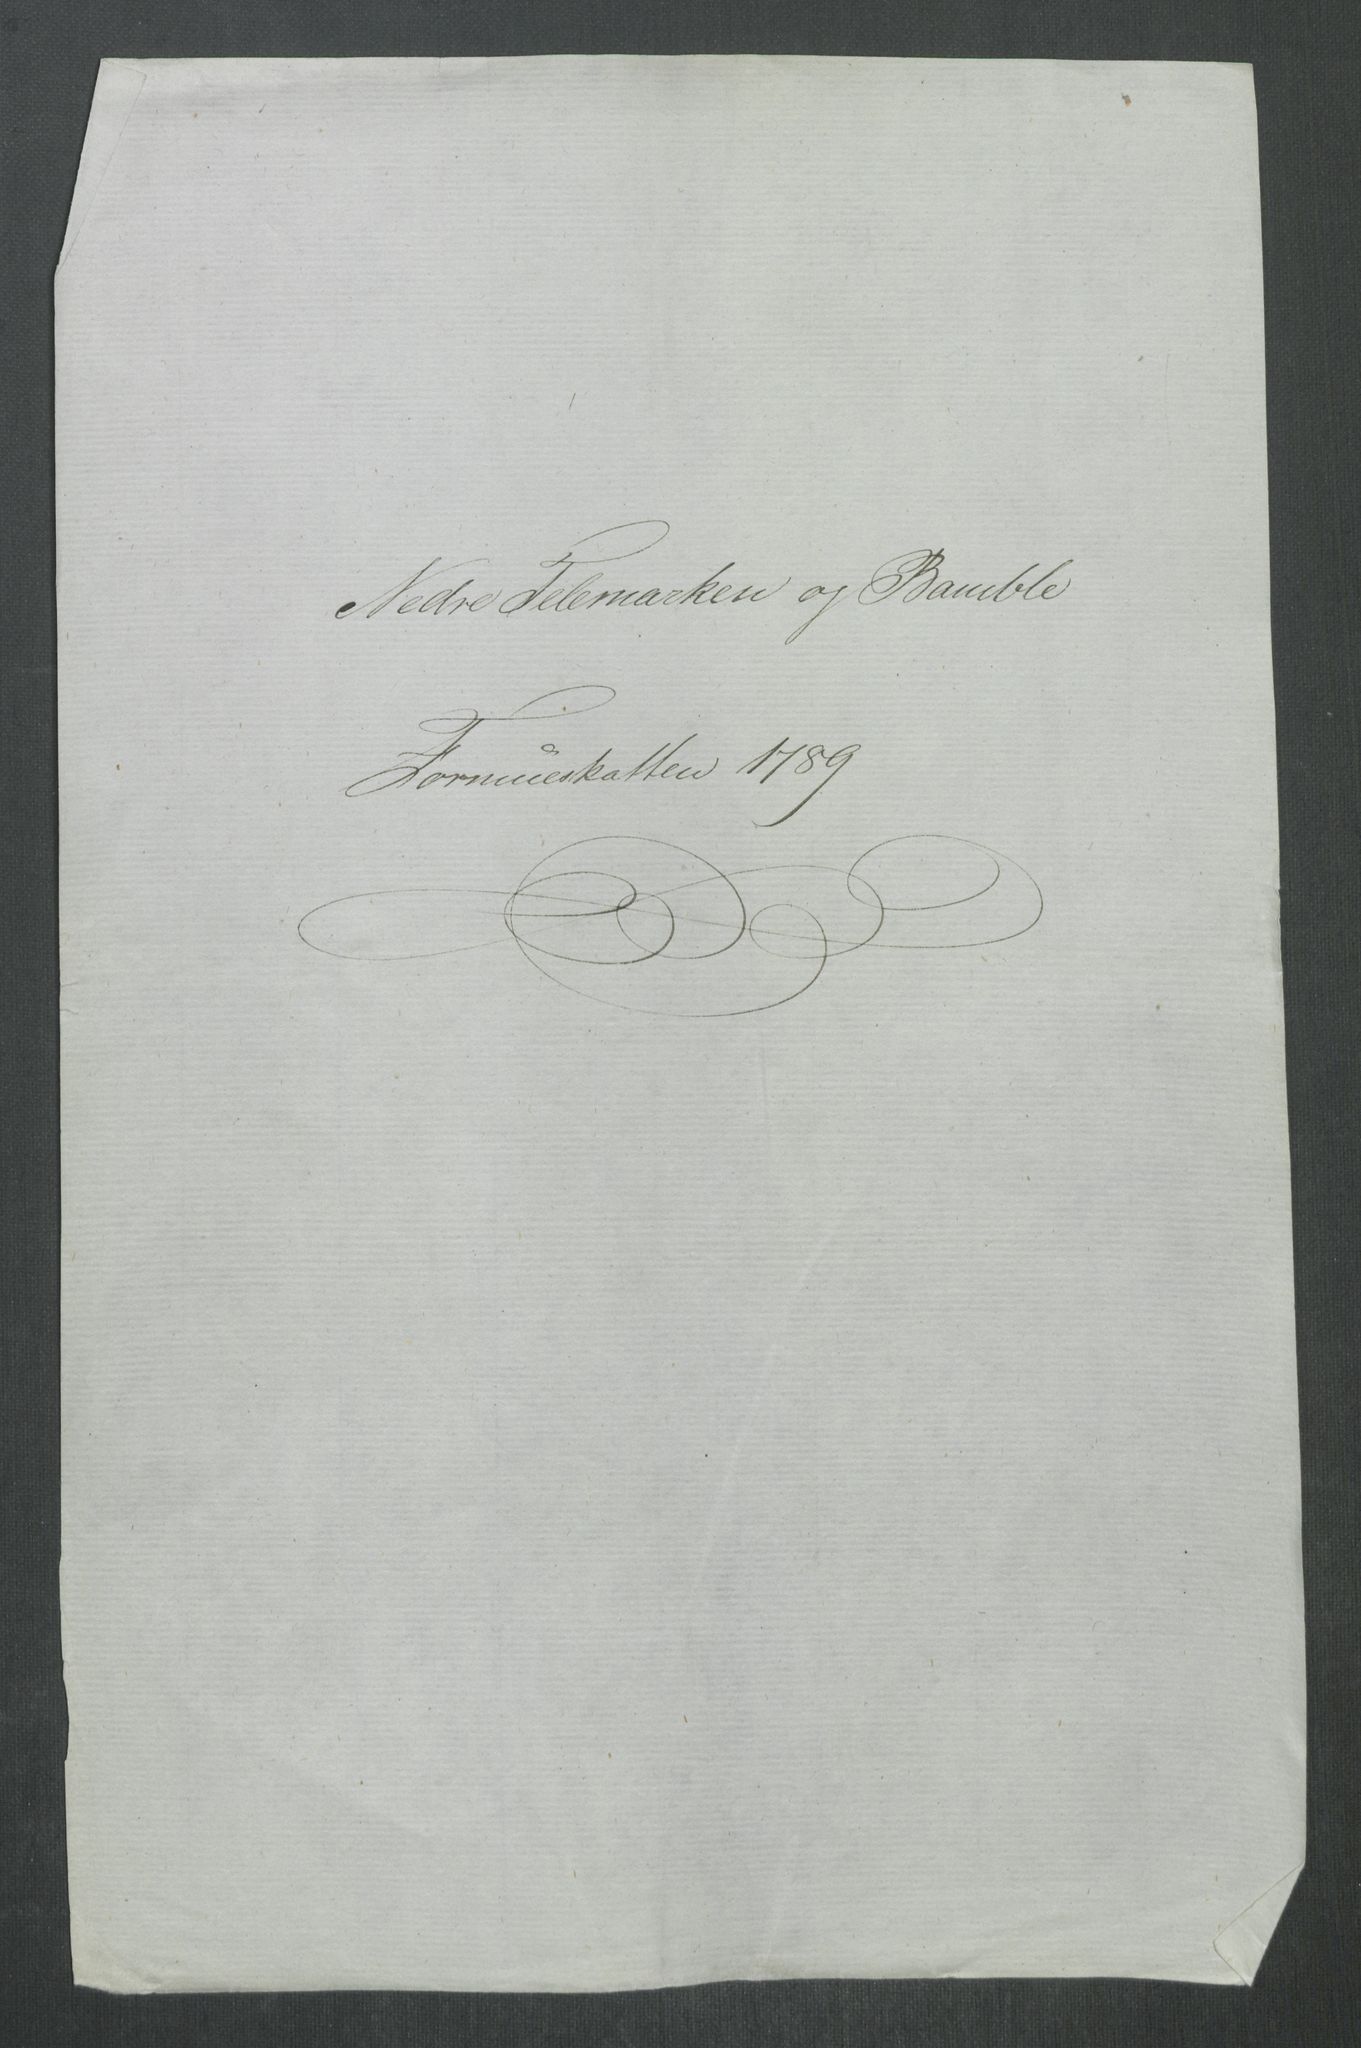 Nedre Telemarken og Bamble
Formueskatten 1789